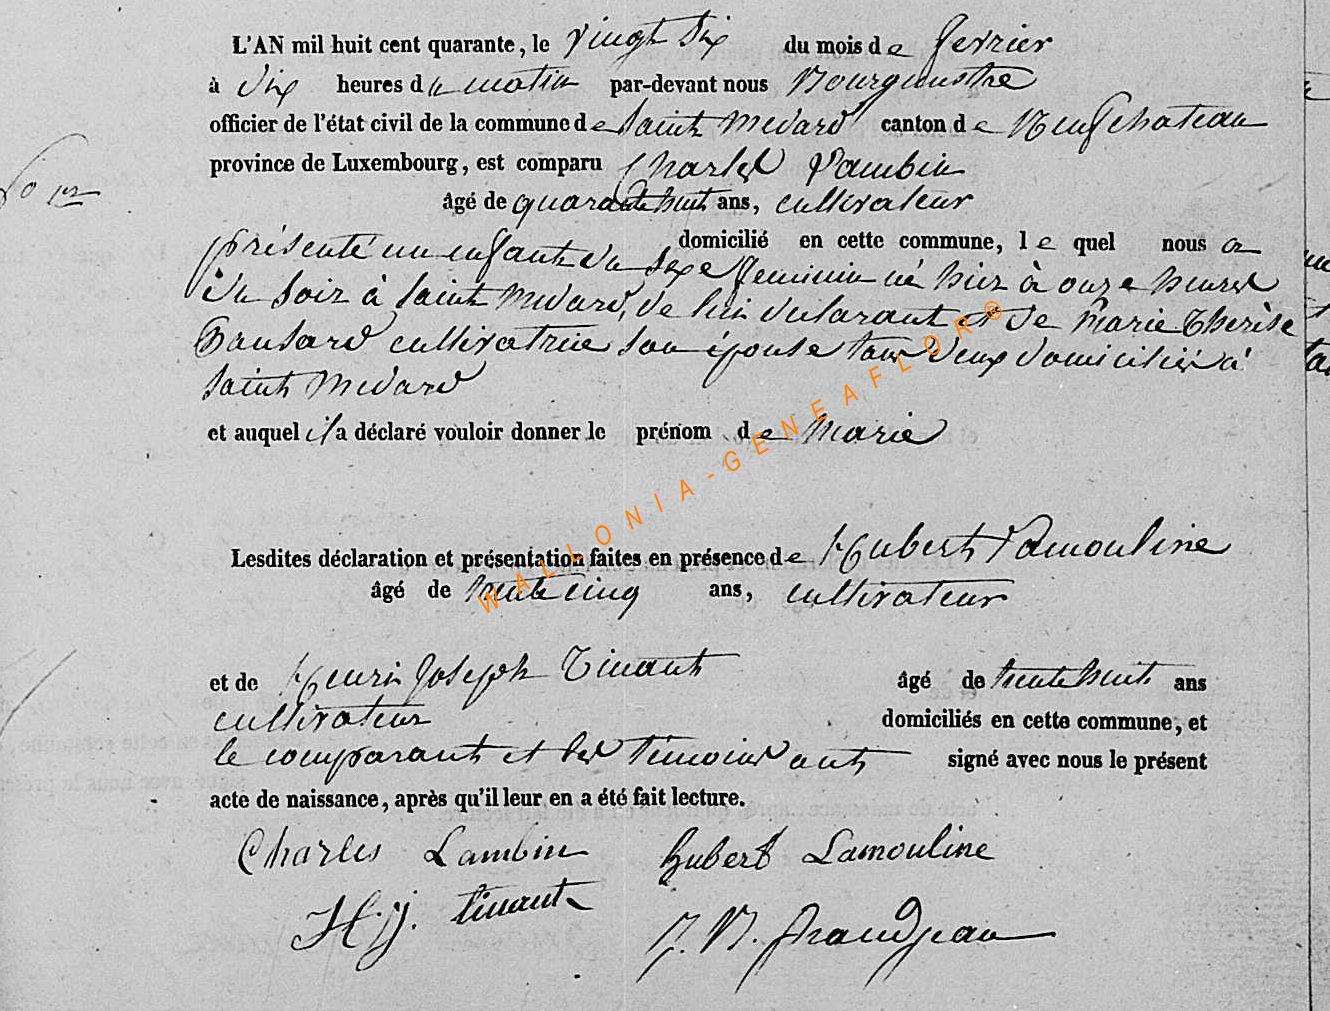 L'AN mil huit cent quarante, le vingt six du mois de fevrier
à dix heures du matin par-devant nous Bourgmestre
officier de l'état civil de la commune de Saint Medard canton de Neufchateau
province de Luxembourg, est comparu Charles Lambin
âgé de quarante huit ans, cultivateur
domicilié en cette commune, lequel nous a
présenté un enfant du sexe feminin né hier à onze heures
du soir à Saint Medard, de lui declarant et de Marie Therèse
cultivatrice son épouse tous deux domiciliés à
Saint Medard
et auquel il a déclaré vouloir donner le prénom de Marie
Lesdites déclaration et présentation faites en présence de Hubert Lamouline
âgé de trente cinq ans, cultivateur
et de Henri Joseph Tinant âgé de trente huit ans
cultivateur domiciliés en cette commune, et
le comparant et les témoins ont signé avec nous le présent
acte de naissance, après qu'il leur en a été fait lecture.
Charles Lambin Hubert Lamouline
H. j. tinant J. N. Grandjean
WALLONIA-GENEAFLOR®